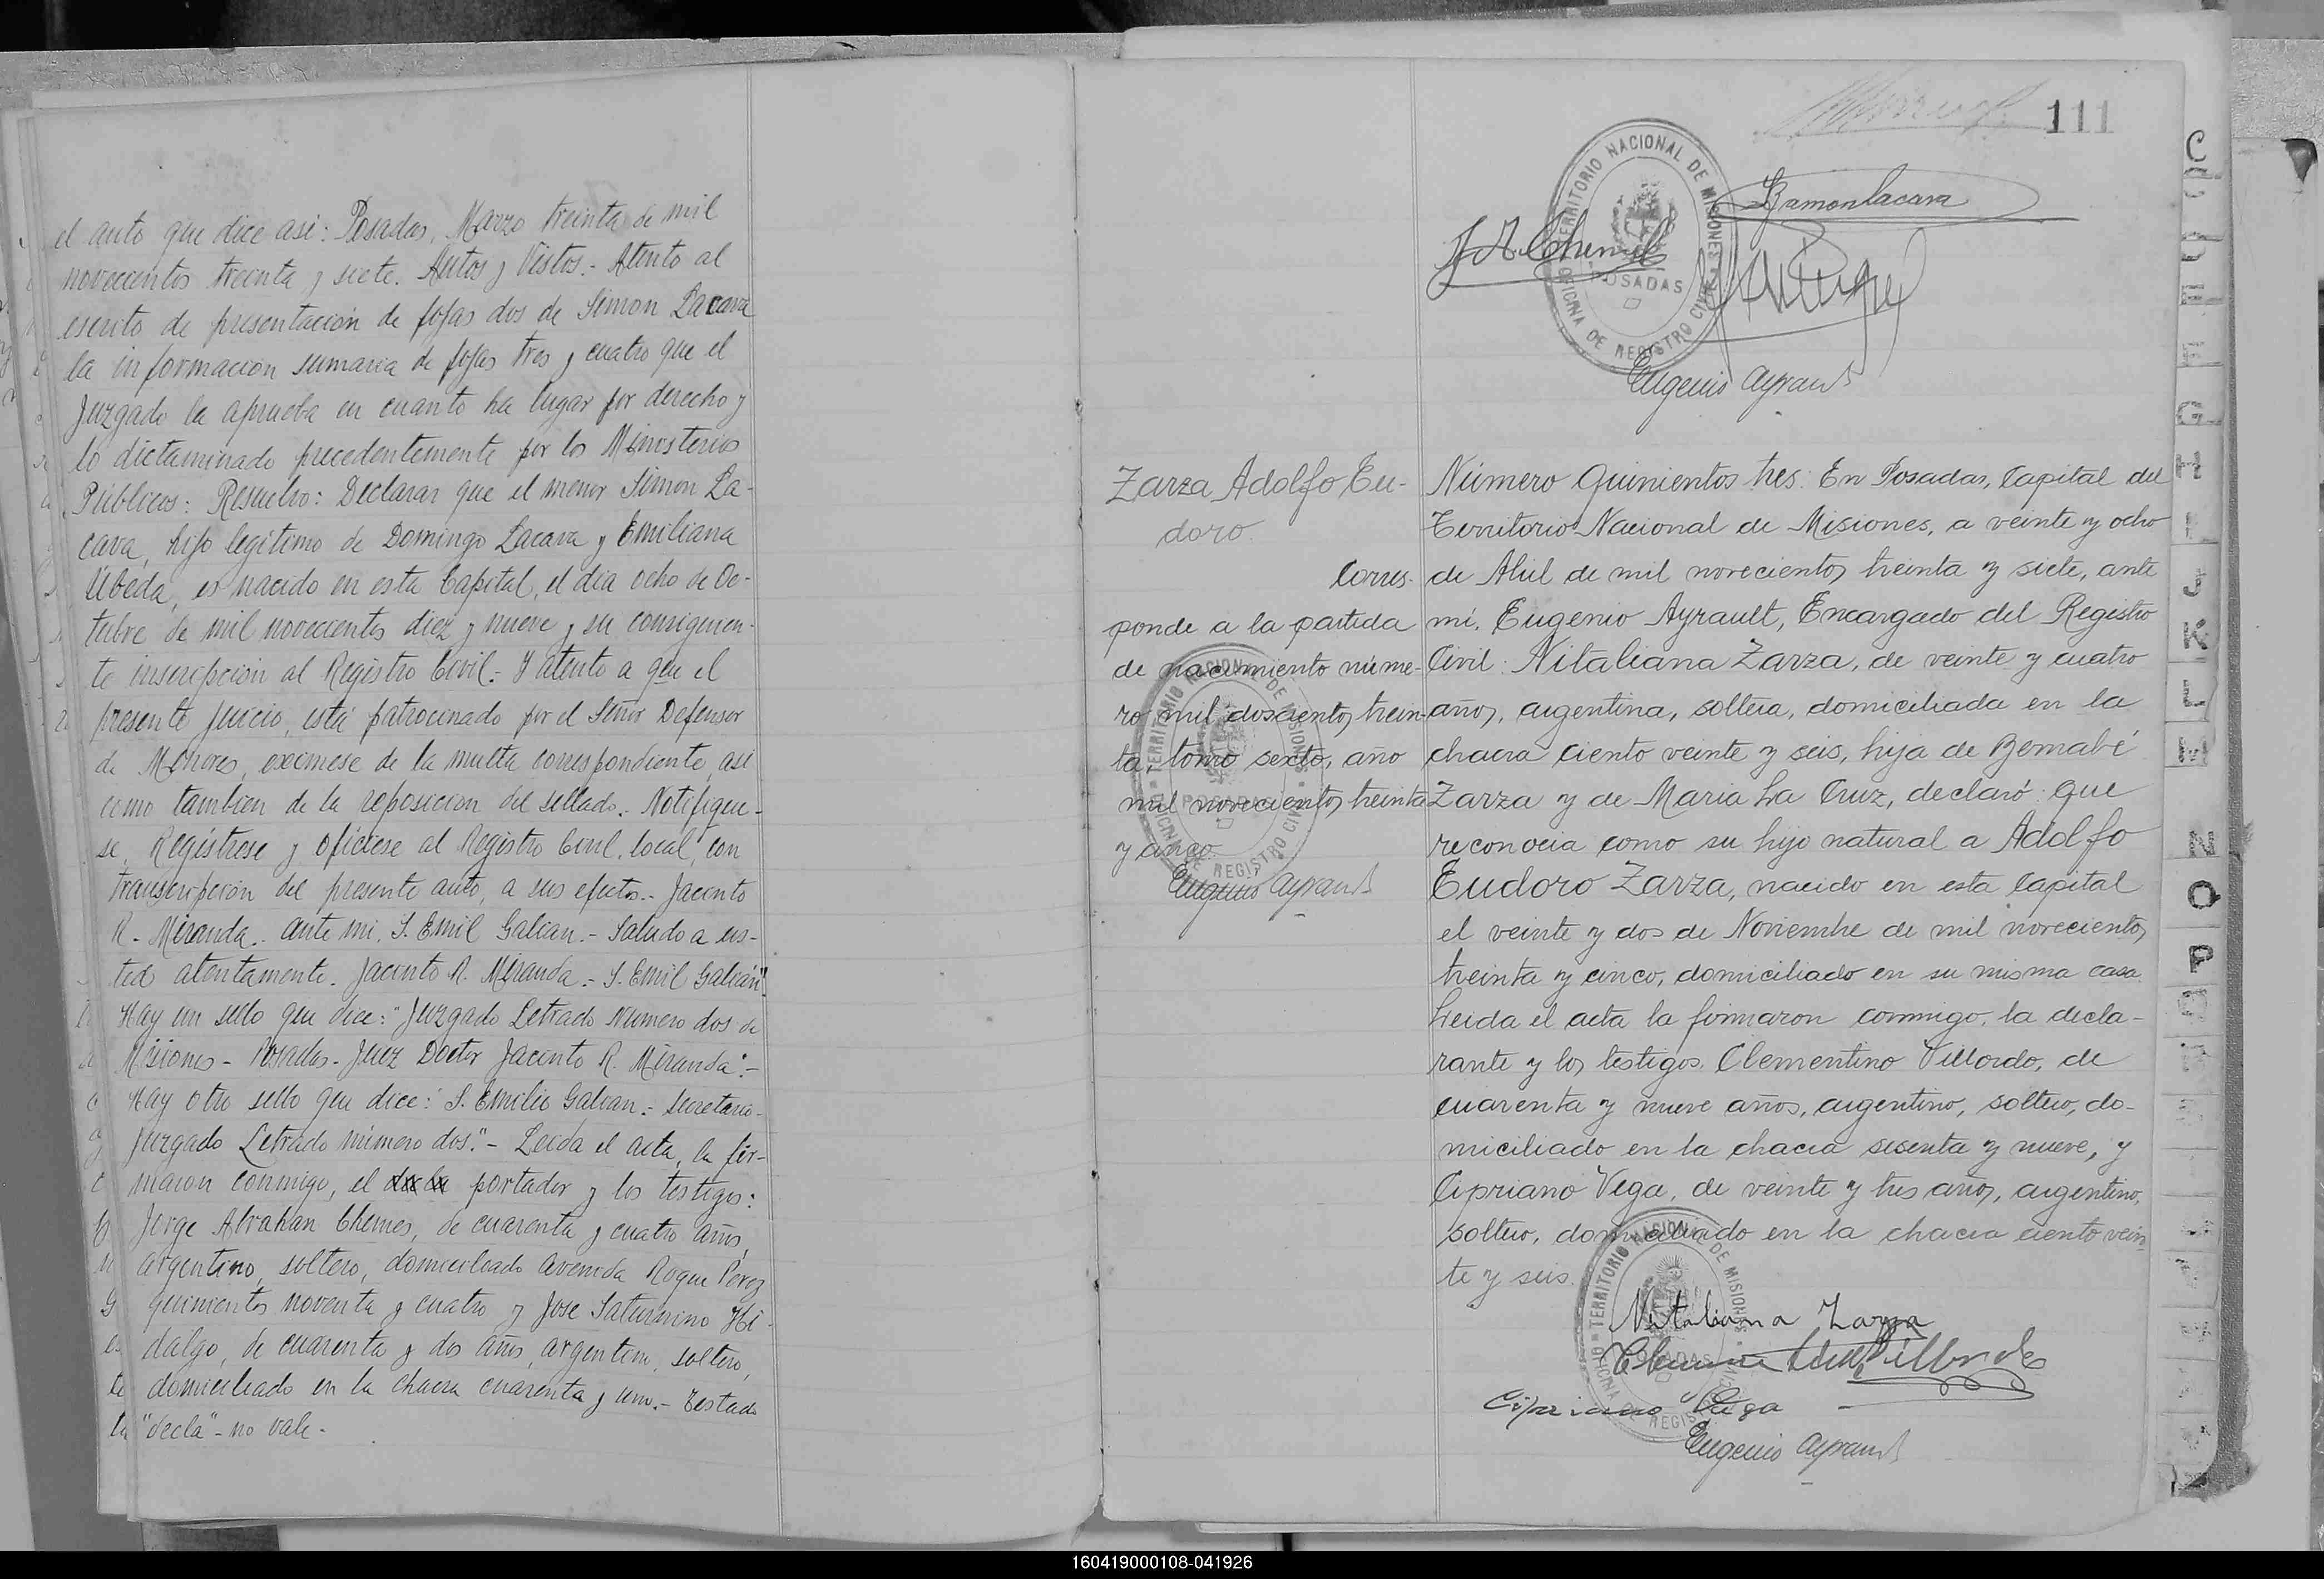 el auto que dice asi: Posadas, Marzo treinta de mil
novecientos treinta y siete. Autos y Vistos.- Atento al
escrito de presentación de fojas dos de Simon Lacava
la informacion sumaria de fojas tres y cuatro que el
Juzgado la aprueba en cuanto ha lugar por derecho y
lo dictaminado precedentemente por los Ministerios
Públicos: Resuelvo: Declarar que el menor Simon La-
cava, hijo legítimo de Domingo Lacava y Emiliana
Ubeda, es nacido en esta Capital, el dia ocho de Oc-
tubre de mil novecientos diez y nueve y su consiguien-
te inscripción al Registro Civil.- Y atento a que el
presente juicio, está patrocinado por el Señor Defensor
de Menores, exímese de la multa correspondiente, asi
como tambien de la reposicion del sellado.- Notifíque-
se, Regístrese y Ofíciese al Registro Civil, local, con
transcripción del presente auto, a sus efectos.- Jacinto
R. Miranda.- Ante mi, S. Emil Galian.- Saludo a us-
ted atentamente. Jacinto R. Miranda.- S. Emil Galián".
Hay un sello que dice: "Juzgado Letrado Numero dos de
Misiones - Posadas - Juez Doctor Jacinto R. Miranda".-
Hay otro sello que dice: "S. Emilio Galian.- Secretario-
Juzgado Letrado número dos."- Leída el acta, la fir-
maron conmigo, el portador y los testigos:
Jorge Abrahan Chemes, de cuarenta y cuatro años,
argentino, soltero, domiciliado Avenida Roque Perez
quinientos noventa y cuatro y Jose Saturnino Hi-
dalgo, de cuarenta y dos años, argentino, soltero,
domiciliado en la chacra cuarenta y uno.- Testado
"decla"- no vale.-
111
TERRITORIO NACIONAL DE MISIONES
POSADAS
OFICINA DE REGISTRO CIVIL
Ramon Lacava
Eugenio Ayrault
Zarza Adolfo Eu-
doro.
Corres-
ponde a la partida
de nacimiento núme-
ro mil doscientos trein-
ta, tomo sexto, año
mil novecientos treinta
y cinco.
Eugenio Ayrault
TERRITORIO NACIONAL DE MISIONES
POSADAS
OFICINA DE REGISTRO CIVIL
Número Quinientos tres: En Posadas, Capital del
Territorio Nacional de Misiones, a veinte y ocho
de Abril de mil novecientos treinta y siete, ante
mi, Eugenio Ayrault, Encargado del Registro
Civil: Nitaliana Zarza, de veinte y cuatro
años, argentina, soltera, domiciliada en la
chacra ciento veinte y seis, hija de Bernabé
Zarza y de Maria La Cruz, declaró: que
reconocia como su hijo natural a Adolfo
Eudoro Zarza, nacido en esta Capital
el veinte y dos de Noviembre de mil novecientos
treinta y cinco, domiciliado en su misma casa.
Leida el acta la firmaron conmigo, la decla-
rante y los testigos. Clementino Villordo, de
cuarenta y nueve años, argentino, soltero, do-
miciliado en la chacra sesenta y nueve, y
Cipriano Vega, de veinte y tres años, argentino,
soltero, domiciliado en la chacra ciento vein-
te y seis.
Nitaliana Zarza
Cipriano Vega
Eugenio Ayrault
TERRITORIO NACIONAL DE MISIONES
POSADAS
OFICINA DE REGISTRO CIVIL
C
D
E
F
G
H
I
J
K
L
M
N
O
P
Q
160419000108-041926